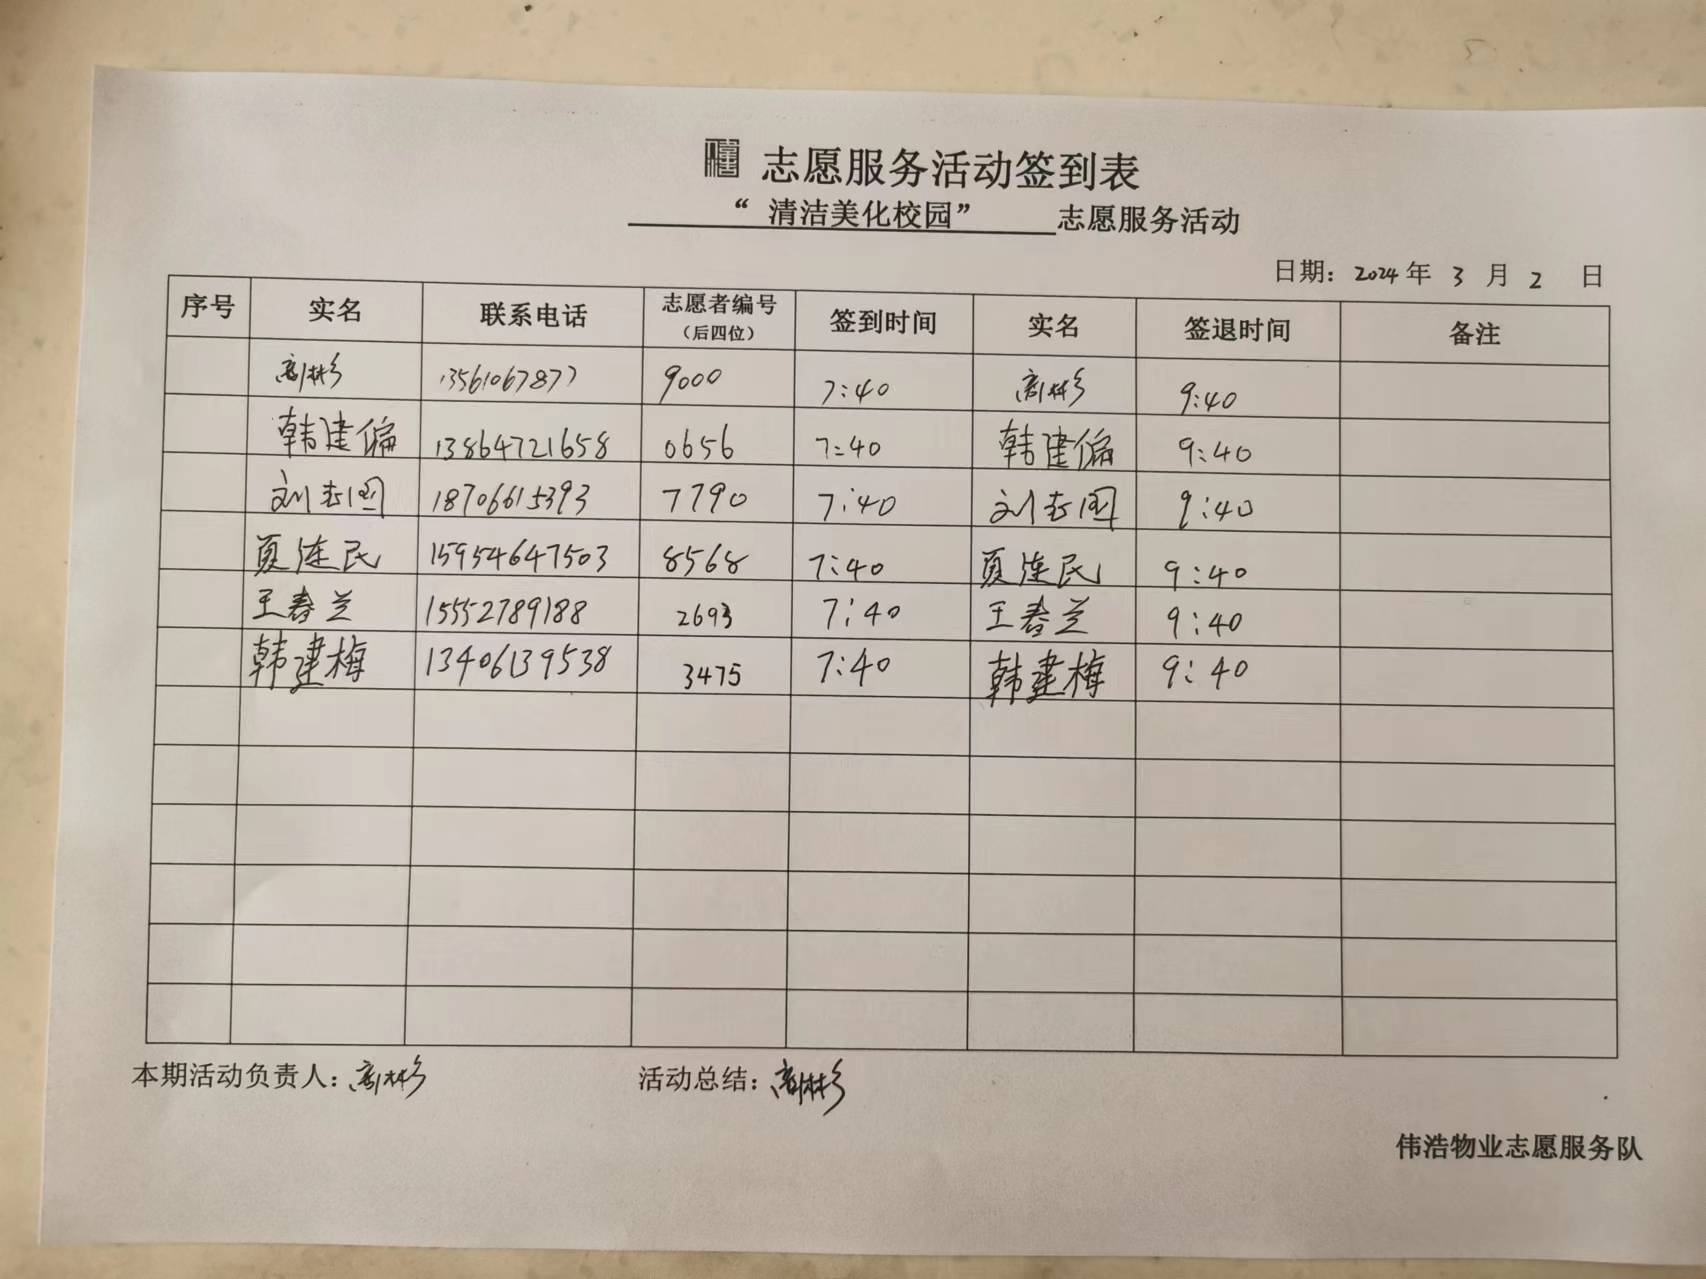 志愿服务活动签到表
“ 清洁美化校园” 志愿服务活动
日期: 2024 年 3 月 2 日
序号 实名 联系电话 志愿者编号 (后四位) 签到时间 实名 签退时间 备注
13561067877 9000 7:40 9:40
韩建偏 13864721658 0656 7:40 韩建偏 9:40
刘志国 18706615393 7790 7:40 刘志国 9:40
夏连民 15954647503 8568 7:40 夏连民 9:40
王春兰 15552789188 2693 7:40 王春兰 9:40
韩建梅 13406139538 3475 7:40 韩建梅 9:40
本期活动负责人: 活动总结:
伟浩物业志愿服务队